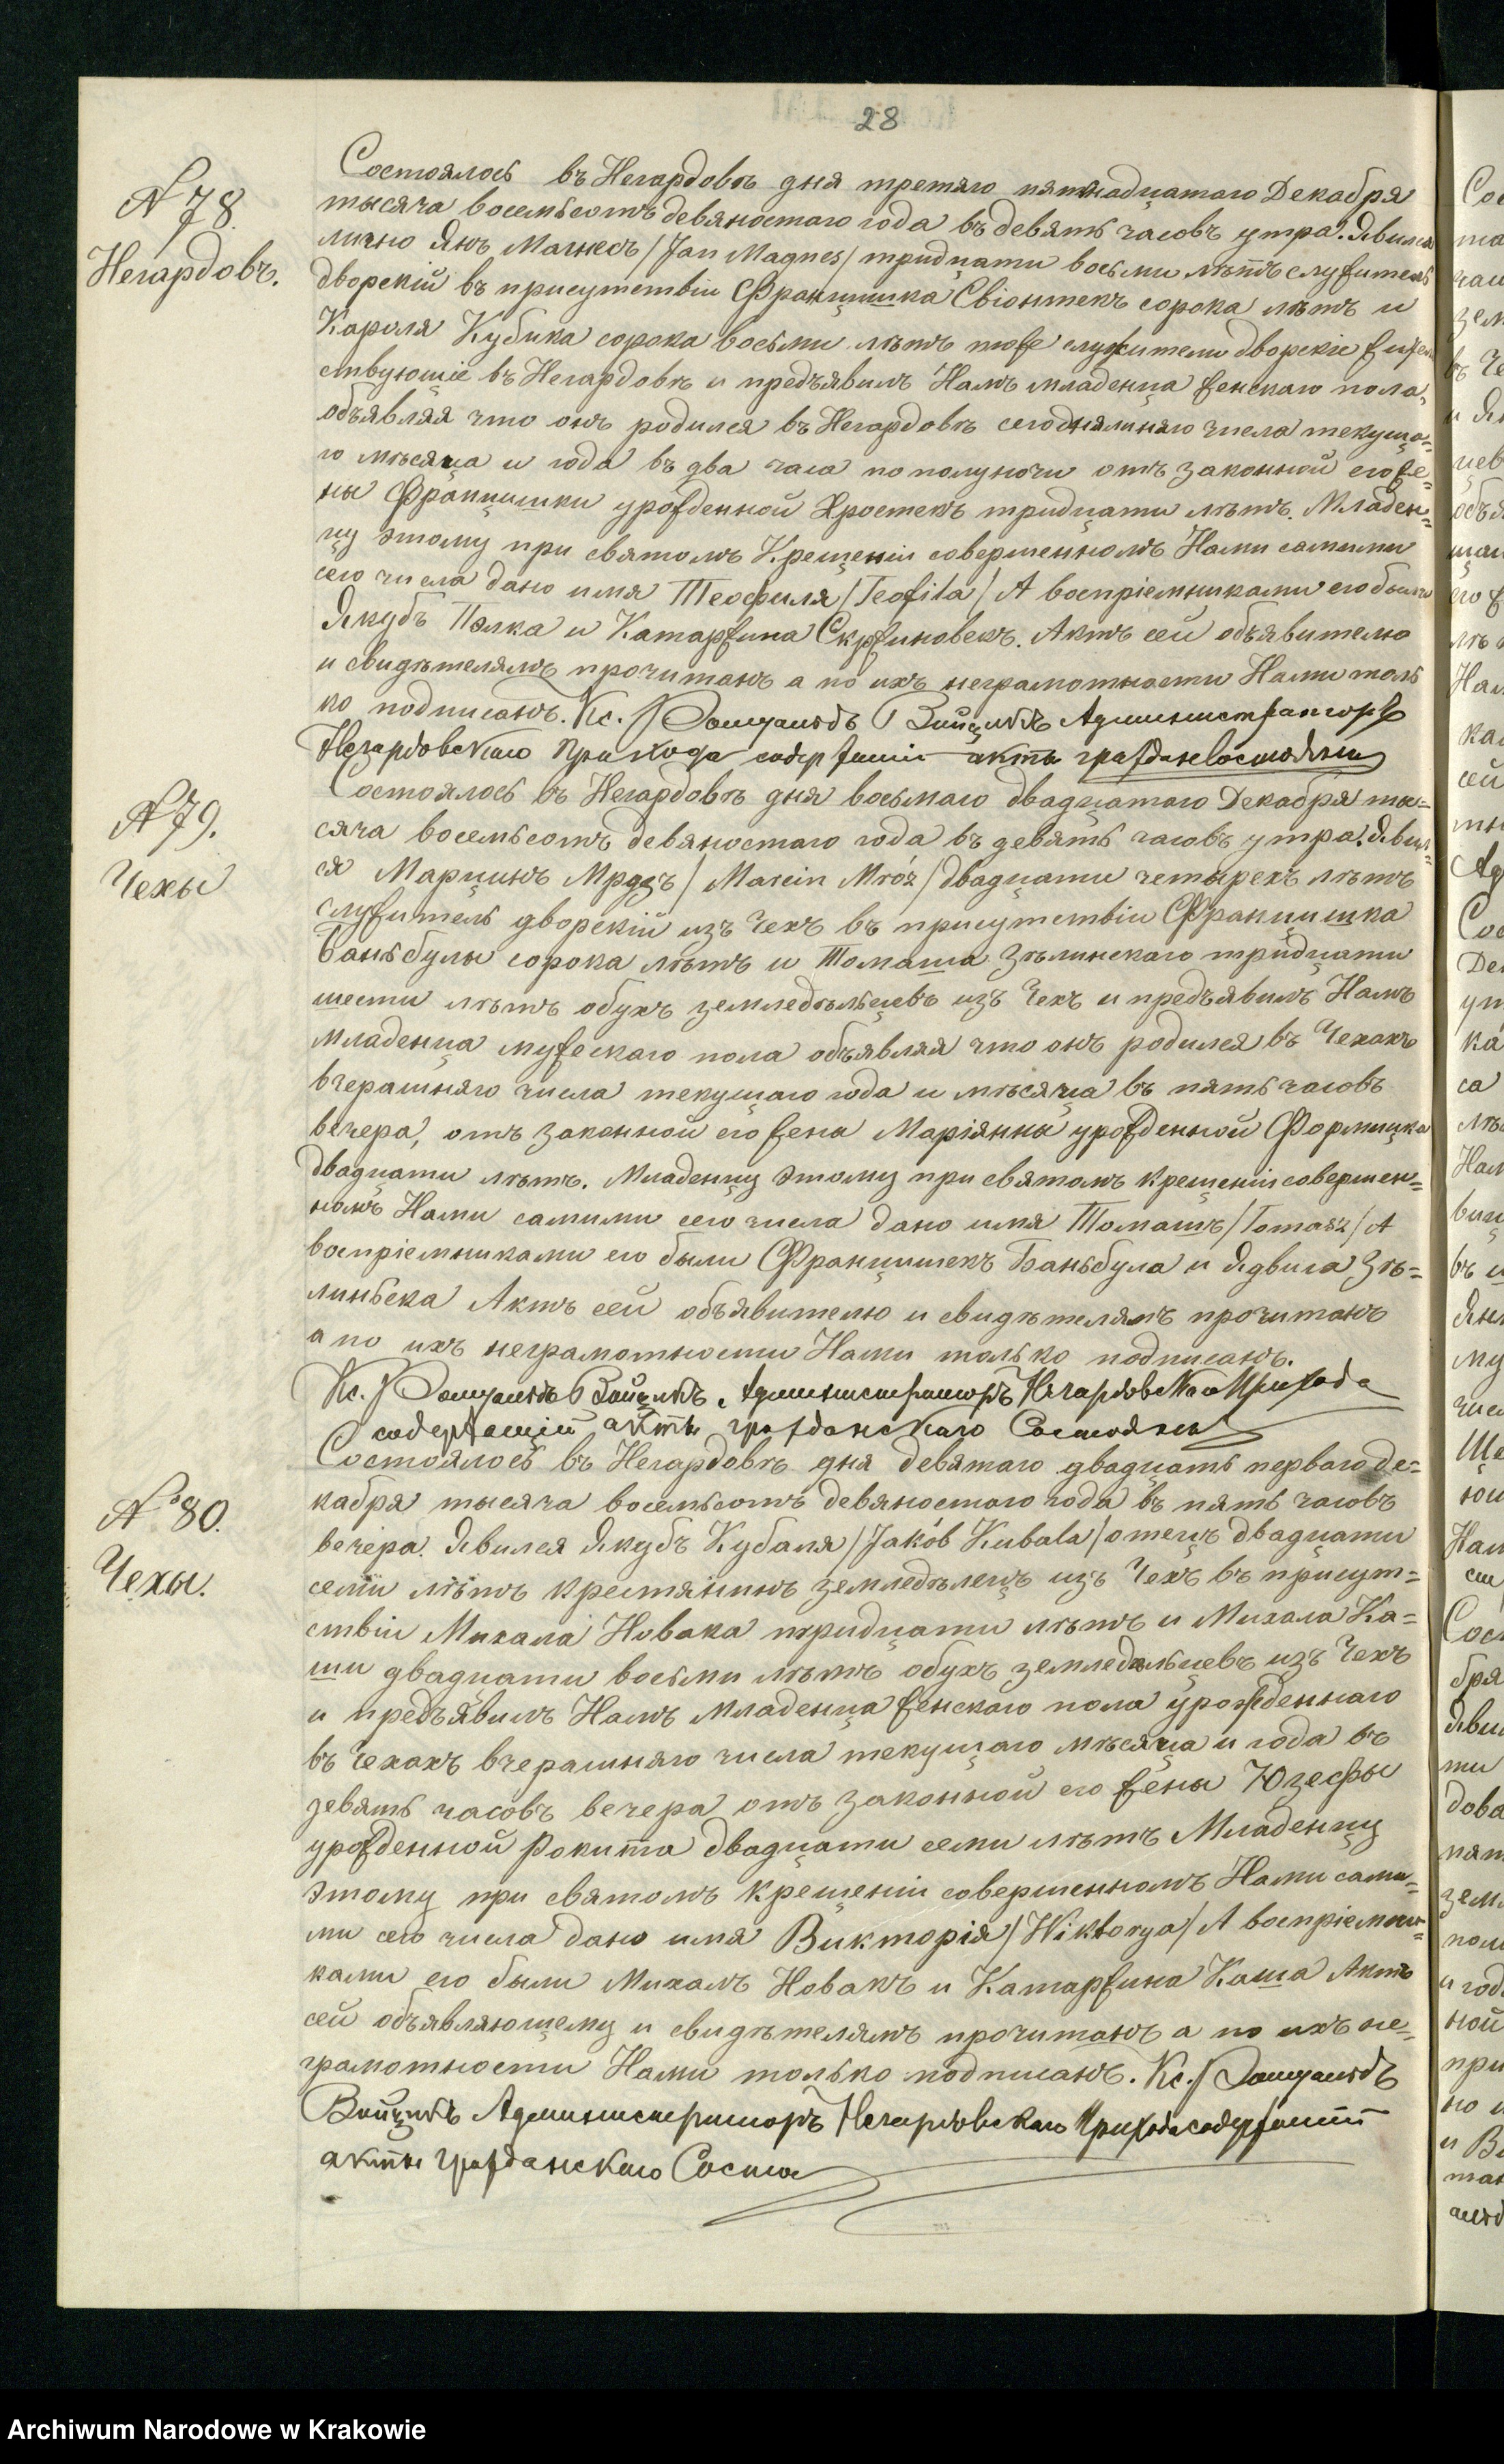 28
№ 78.
Негардовъ.
Состоялось въ Негардовѣ дня третяго пятнадцатаго Декабря
тысяча восемьсотъ девяностаго года въ девять часовъ утра. Явился
лично Янъ Магнесъ /Jan Magnes/ тридцати восьми лѣтъ служитель
дворскій въ присутствіи Францишка Свіонтекъ сорока лѣтъ и
Кароля Кубика сорока восьми лѣтъ тоже служители дворскіе жител
ствующіе въ Негардовѣ и предъявилъ Намъ младенца женскаго пола,
объявляя что онъ родился въ Негардовѣ сегодняшняго числа текуща=
го мѣсяца и года въ два часа пополуночи отъ законной его же=
ны Францишки урожденной Хростекъ тридцати лѣтъ. Младен=
цу этому при святомъ Крещеніи совершенномъ Нами самими
сего числа дано имя Теофиля /Teofila/ А воспріемниками его были
Якубъ Пэлка и Катаржина Скржиновекъ. Актъ сей объявителю
и свидѣтелямъ прочитанъ а по ихъ неграмотности Нами толь
ко подписанъ. Кс. Ромуальдъ Войцикъ Администраторъ
Негардовскаго Прихода содержащій акты гражд. Состоянія
№ 79.
Чехы
Состоялось въ Негардовѣ дня восьмаго двадцатаго Декабря ты=
сяча восемьсотъ девяностаго года въ девять часовъ утра. Явил=
ся Марцинъ Мрузъ /Marcin Mróz/ двадцати четырехъ лѣтъ
служитель дворскій изъ Чехъ въ присутствіи Францишка
Баньбулы сорока лѣтъ и Томаша Зѣлинскаго тридцати
шести лѣтъ обухъ земледѣльцевъ изъ Чехъ и предъявилъ Намъ
младенца мужескаго пола объявляя что онъ родился въ Чехахъ
вчерашняго числа текущаго года и мѣсяца въ пять часовъ
вечера, отъ законной его жены Маріянны урожденной Формицка
двадцати лѣтъ. Младенцу этому при святомъ крещеніи совершен=
номъ Нами самими сего числа дано имя Томашъ /Tomasz/ А
воспріемниками его были Францишекъ Баньбула и Ядвига Зѣ=
линьска Актъ сей объявителю и свидѣтелямъ прочитанъ
а по ихъ неграмотности Нами только подписанъ.
Кс. Ромуальдъ Войцикъ Администраторъ Негардовскаго Прихода
содержащій акты гражданскаго Состоянія
№ 80.
Чехы.
Состоялось въ Негардовѣ дня девятаго двадцать перваго де=
кабря тысяча восемьсотъ девяностаго года въ пять часовъ
вечера. Явился Якубъ Кубаля /Jakób Kubala/ отецъ двадцати
семи лѣтъ крестянинъ земледѣлецъ изъ Чехъ въ присут=
ствіи Михала Новака тридцати лѣтъ и Михала Ка=
ши двадцати восьми лѣтъ обухъ земледѣльцевъ изъ Чехъ
и предъявилъ Намъ младенца женскаго пола урожденнаго
въ Чехахъ вчерашняго числа текущаго мѣсяца и года въ
девять часовъ вечера отъ законной его жены Юзефы
урожденной Рокита двадцати семи лѣтъ Младенцу
этому при святомъ крещеніи совершенномъ Нами сами=
ми сего числа дано имя Викторія /Wiktorya/ А воспріемни=
ками его были Михалъ Новакъ и Катаржина Каша Актъ
сей объявляющему и свидѣтелямъ прочитанъ а по ихъ не=
грамотности Нами только подписанъ. Кс. Ромуальдъ
Войцикъ Администраторъ Негардовскаго Прихода содержащій
акты гражданскаго Состоя
Archiwum Narodowe w Krakowie